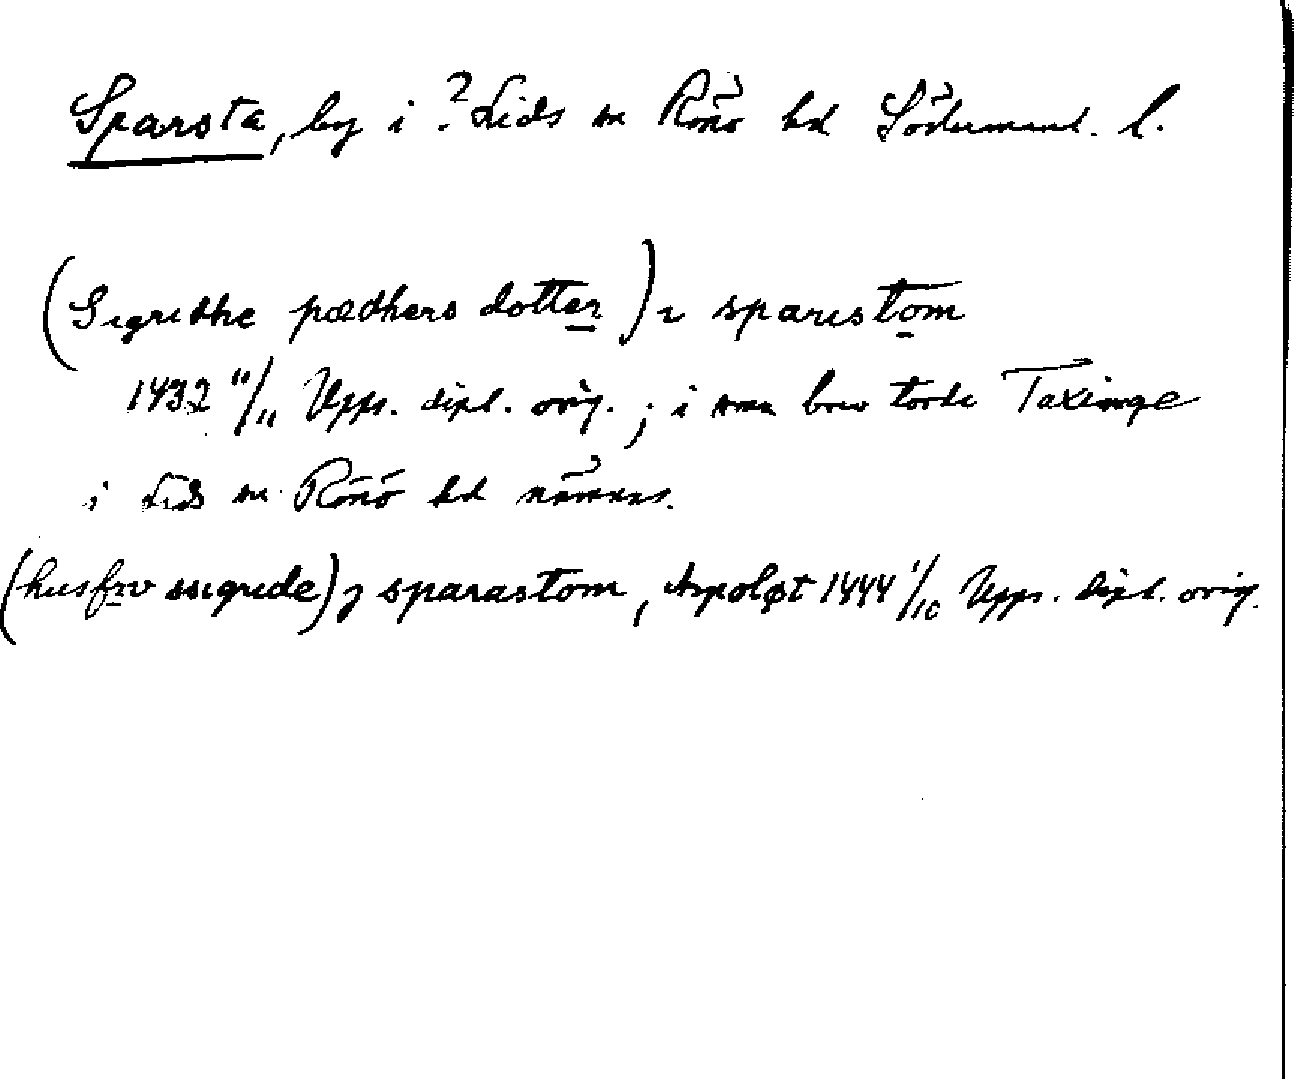 Sparsta, by i ? Lids sn Rönö hd Södermanl. l.
(Sigridhe pædhers dotter) i sparistom
1432 11/11 Upps. dipl. orig. ; i brev torde Taxinge
i Lids sn Rönö hd nämnas.
(husfrv sigride) j sparastom, Aspoløt 1444 1/10 Upps. dipl. orig.